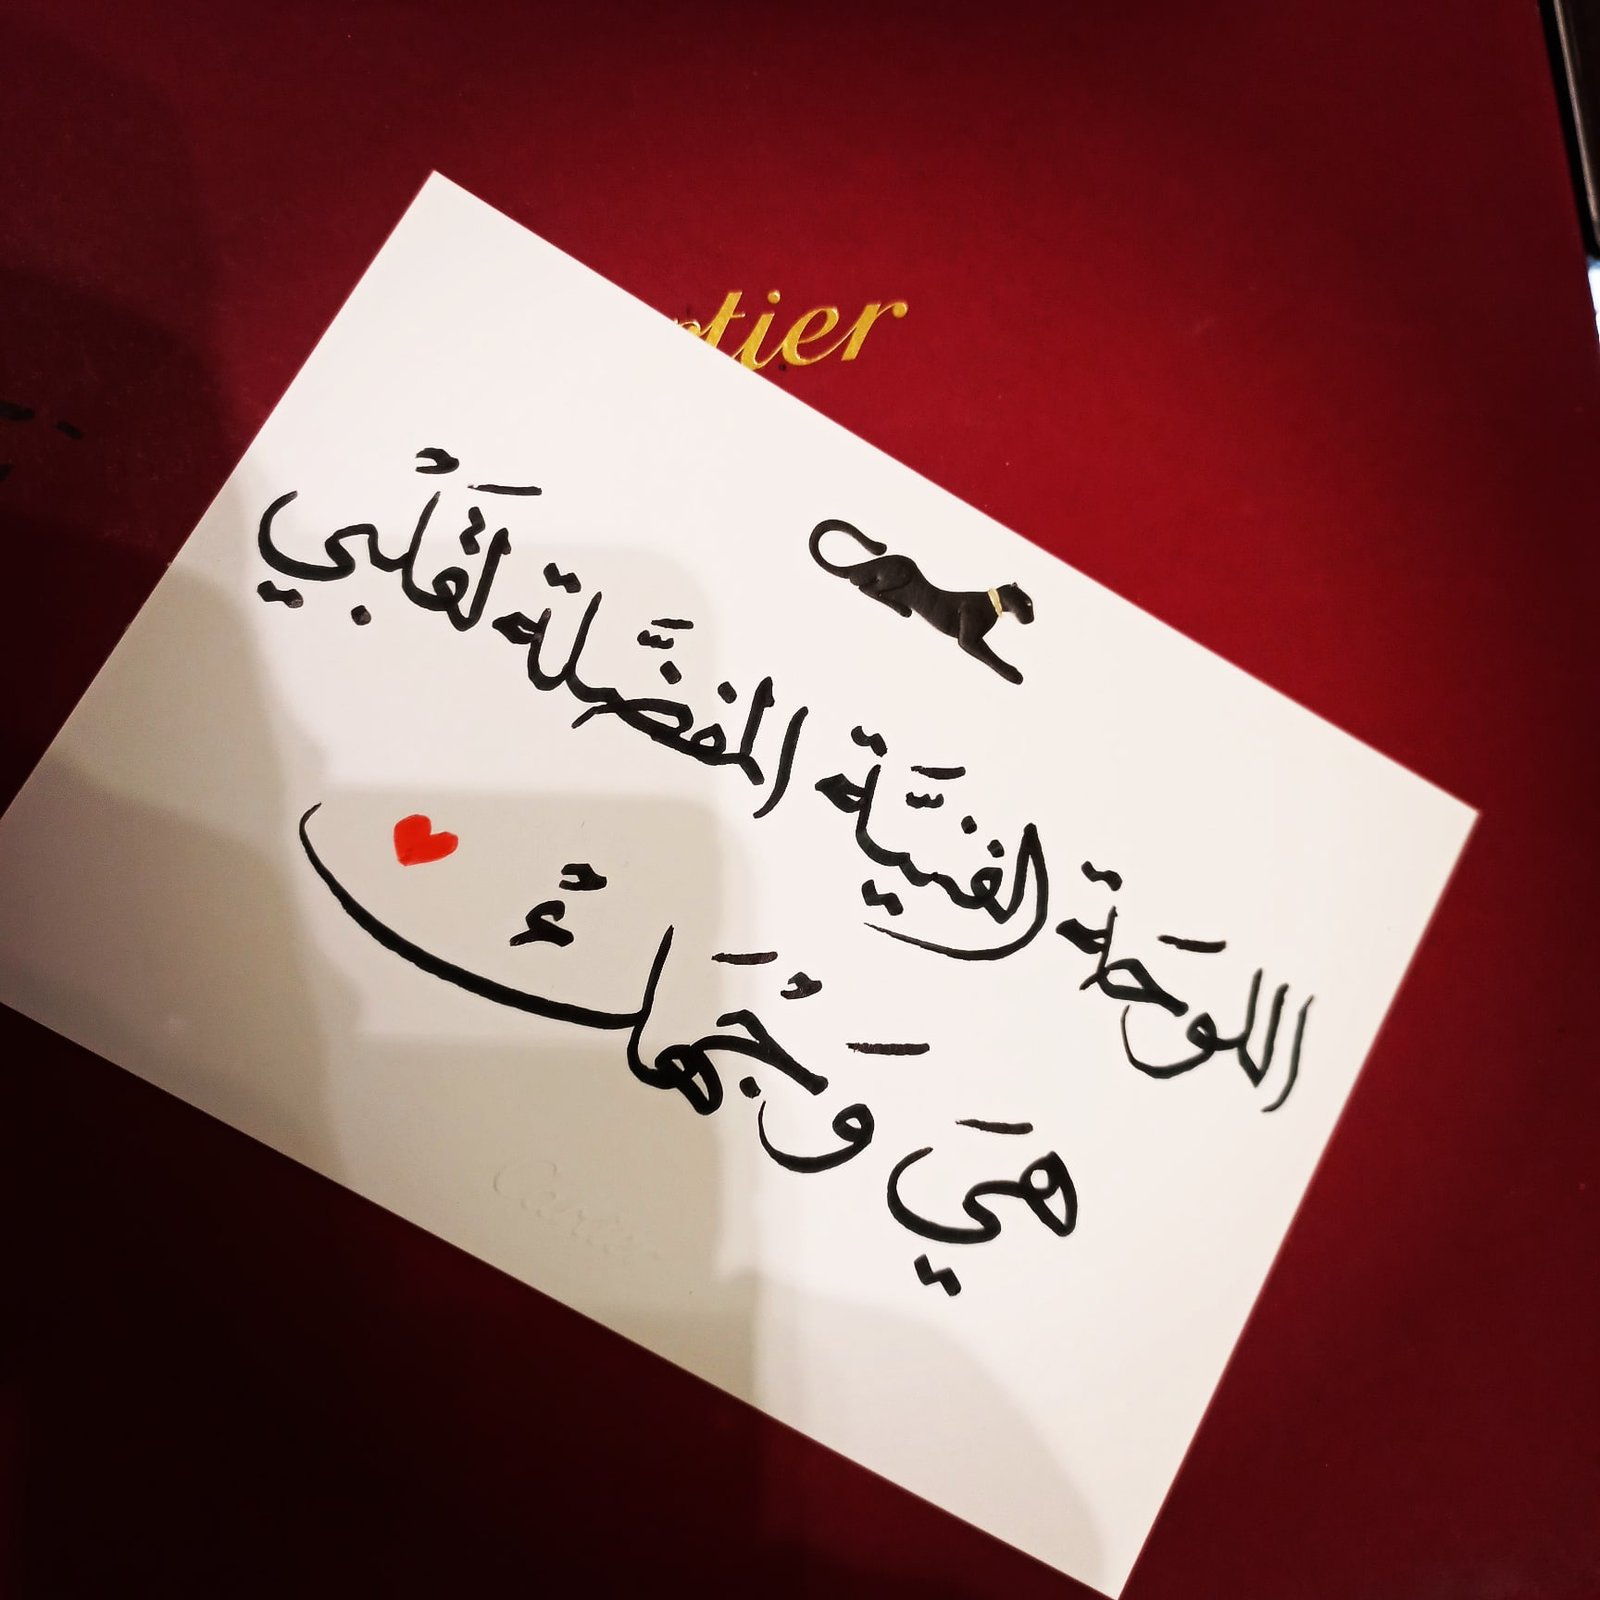 Cartier
اللوحَة الفنيَّة المفضَّلة لقَلْبي
هيَ وَجْهَكْ
Cartier